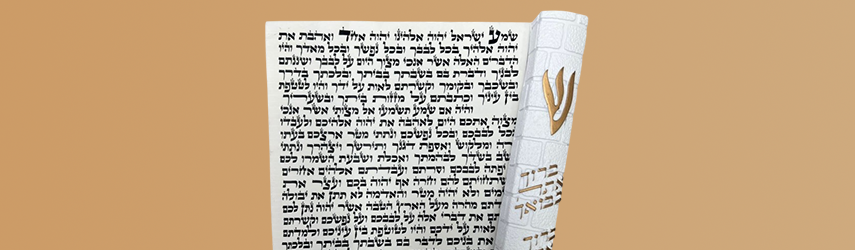 שמע ישראל יהוה אלהינו יהוה אחד ואהבת את
יהוה אלהיך בכל לבבך ובכל נפשך ובכל מאדך והיו
הדברים האלה אשר אנכי מצוך היום על לבבך ושננתם
לבניך ודברת בם בשבתך בביתך ובלכתך בדרך
ובשכבך ובקומך וקשרתם לאות על ידך והיו לטטפת
בין עיניך וכתבתם על מזזות ביתך ובשעריך
והיה אם שמע תשמעו אל מצותי אשר אנכי
מצוה אתכם היום לאהבה את יהוה אלהיכם ולעבדו
כל לבבכם ובכל נפשכם ונתתי מטר ארצכם בעתו
רה ומלקוש ואספת דגנך ותירשך ויצהרך ונתתי
שב בשדך לבהמתך ואכלת ושבעת השמרו לכם
פתה לבבכם וסרתם ועבדתם אלהים אחרים
שתחויתם להם וחרה אף יהוה בכם ועצר את
מים ולא יהיה מטר והאדמה לא תתן את יבולה
דתם מהרה מעל הארץ הטבה אשר יהוה נתן לכם
תם את דברי אלה על לבבכם ועל נפשכם וקשרתם
לאות על ידכם והיו לטוטפת בין עיניכם ולמדתם
את בניכם לדבר בם בשבתך בביתך ובלכתך
ש
ברוך
אתה
בבואך
ברוך